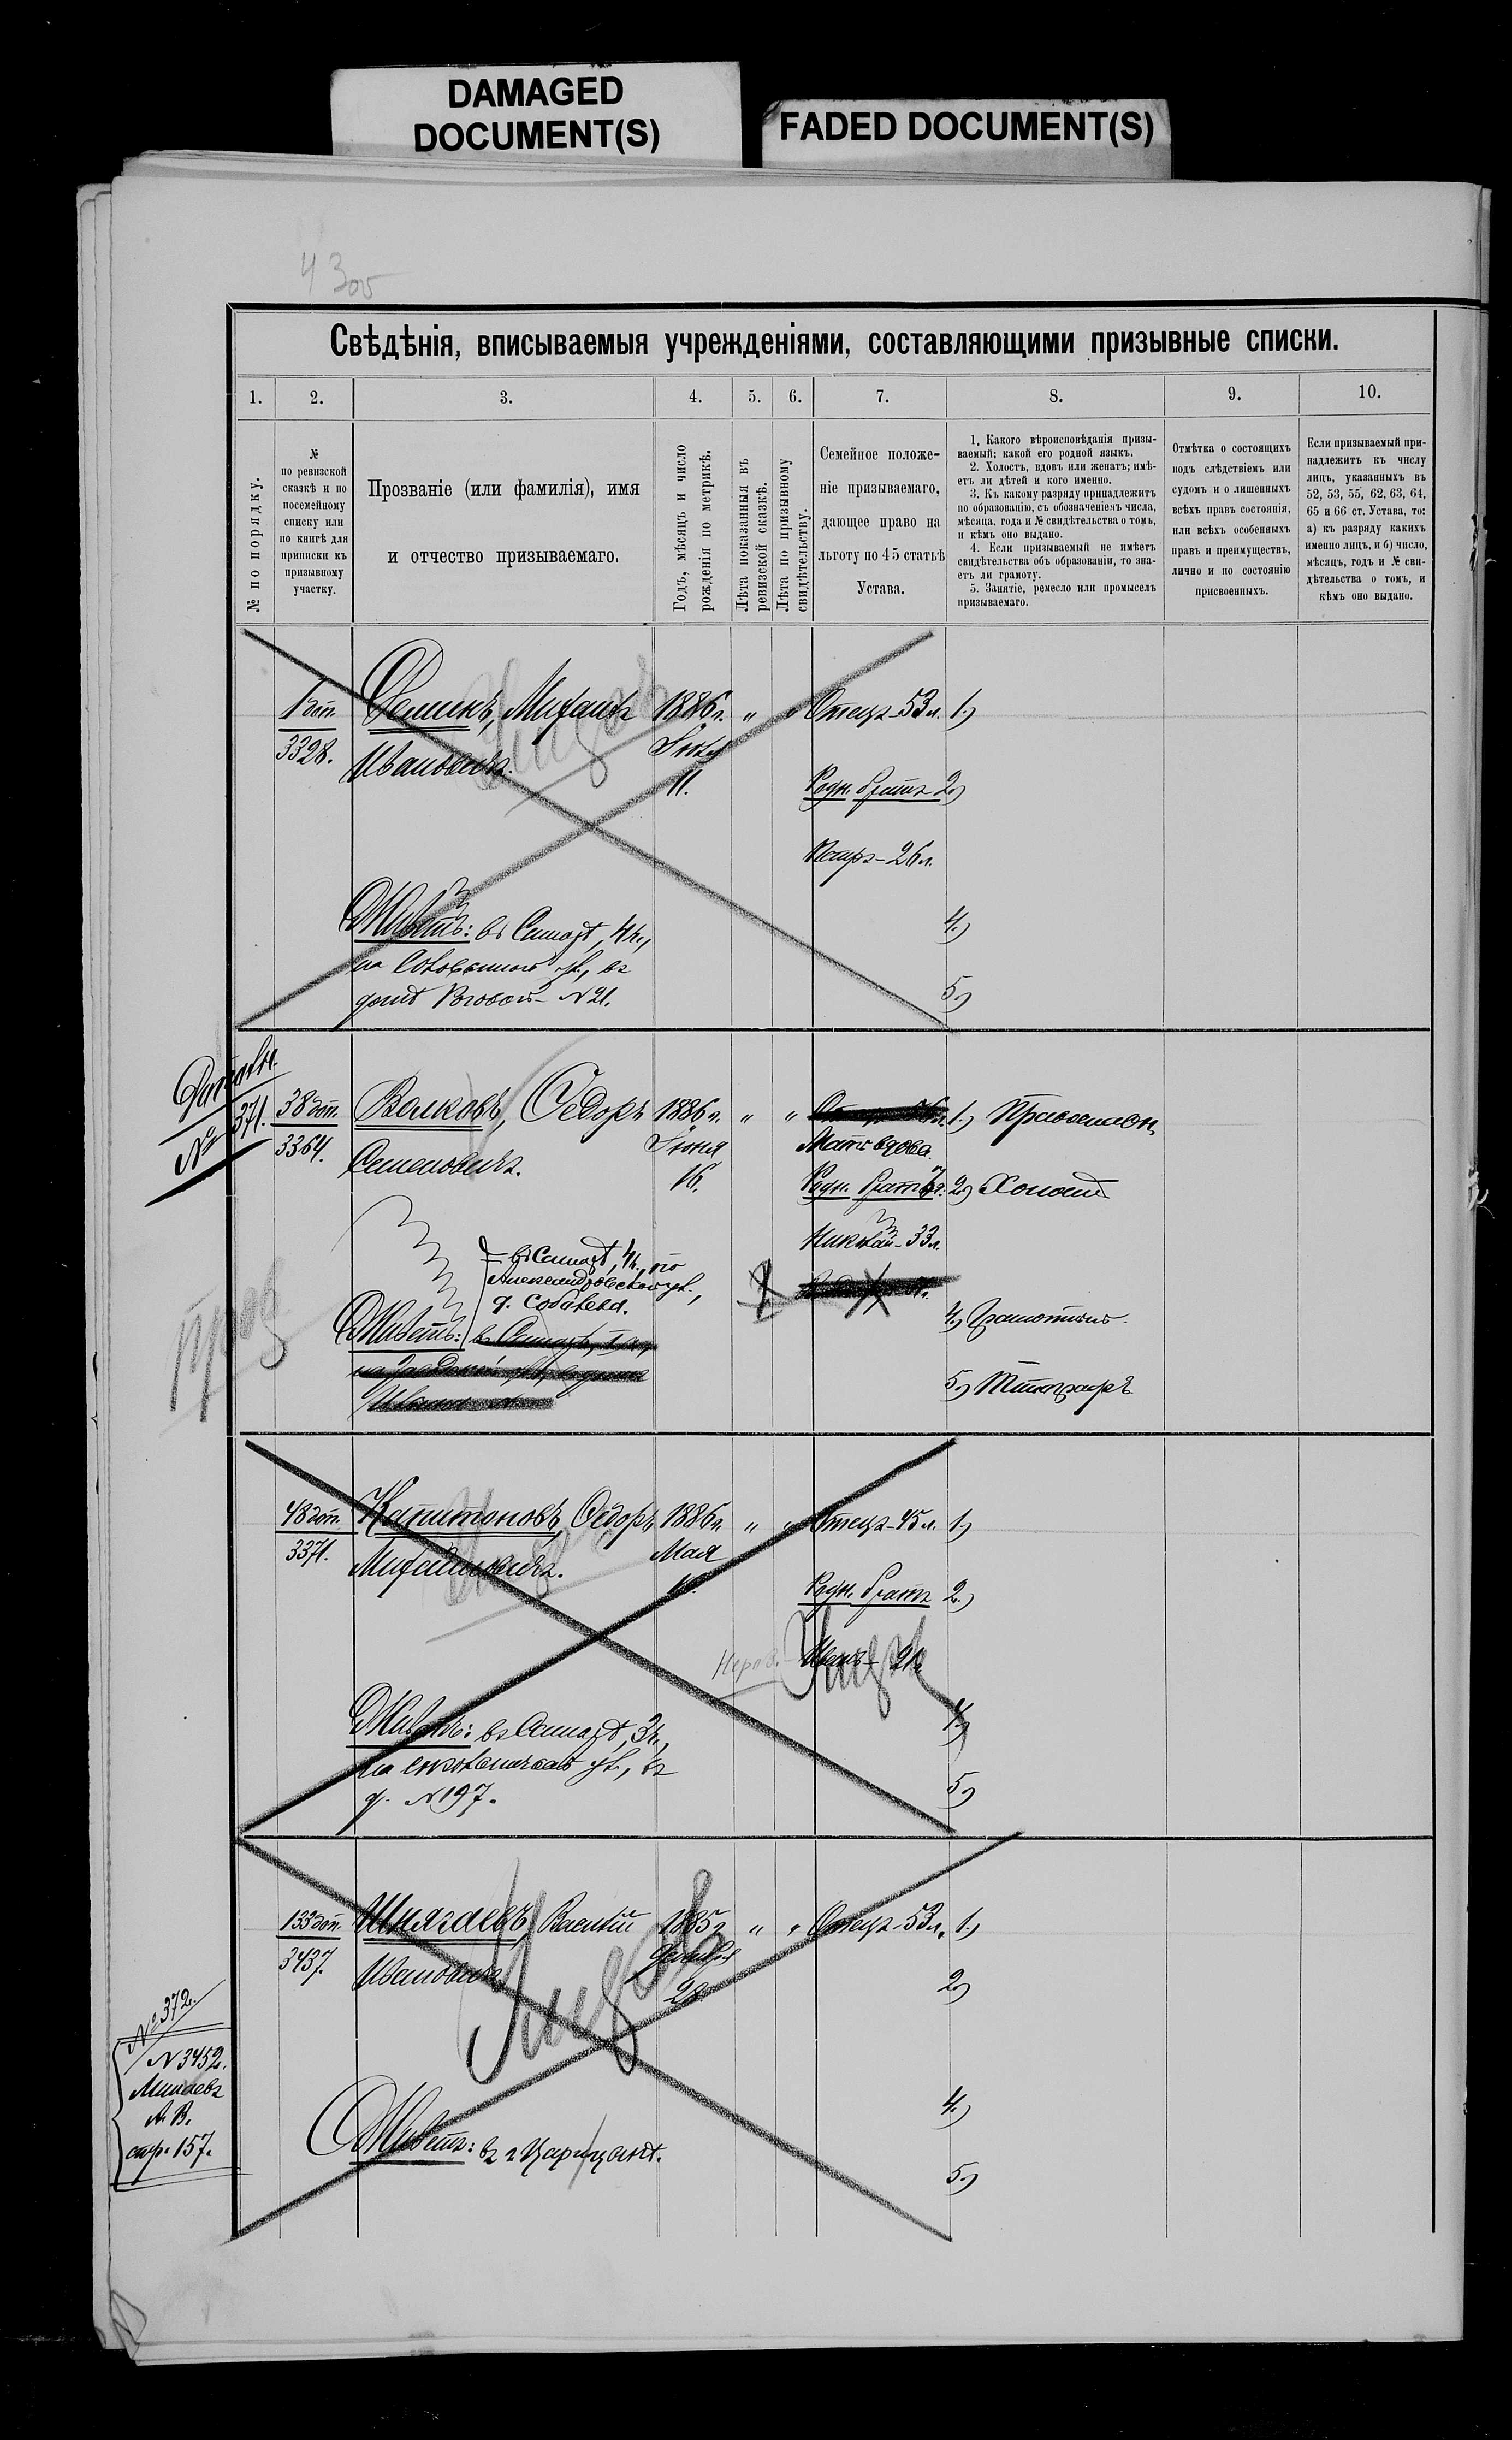 DAMAGED
DOCUMENT(S)
FADED DOCUMENT(S)
43 об
Свѣдѣнія, вписываемыя учрежденіями, составляющими призывные списки.
1.
2.
3.
4.
5.
6.
7.
8.
9.
10.
№ по порядку.
№
по ревизской
сказкѣ и по
посемейному
списку или
по книгѣ для
приписки къ
призывному
участку.
Прозваніе (или фамилія), имя
и отчество призываемаго.
Годъ, мѣсяцъ и число
рожденія по метрикѣ.
Лѣта показанныя въ
ревизской сказкѣ.
Лѣта по призывному
свидѣтельству.
Семейное положе-
ніе призываемаго,
дающее право на
льготу по 45 статьѣ
Устава.
1. Какого вѣроисповѣданія призы-
ваемый; какой его родной языкъ.
2. Холостъ, вдовъ или женатъ; имѣ-
етъ ли дѣтей и кого именно.
3. Къ какому разряду принадлежитъ
по образованію, съ обозначеніемъ числа,
мѣсяца, года и № свидѣтельства о томъ,
и кѣмъ оно выдано.
4. Если призываемый не имѣетъ
свидѣтельства объ образованіи, то зна-
етъ ли грамоту.
5. Занятіе, ремесло или промыселъ
призываемаго.
Отмѣтка о состоящихъ
подъ слѣдствіемъ или
судомъ и о лишенныхъ
всѣхъ правъ состоянія,
или всѣхъ особенныхъ
правъ и преимуществъ,
лично и по состоянію
присвоенныхъ.
Если призываемый при-
надлежитъ къ числу
лицъ, указанныхъ въ
52, 53, 55, 62, 63, 64,
65 и 66 ст. Устава, то:
а) къ разряду какихъ
именно лицъ, и б) число,
мѣсяцъ, годъ и № сви-
дѣтельства о томъ, и
кѣмъ оно выдано.
1 доп.
3328.
Михаилъ
Ивановичъ.
1886 г.
11.
" "
Отецъ-53 л.
Родн. братъ
Петръ-26 л.
1)
2)
4)
5)
Живетъ: въ Самарѣ, 4 ч.,
на ул., въ
домѣ № 21.
№ 371.
38 доп.
3364.
Волковъ, Ѳедоръ
Семеновичъ.
1886 г.
Іюня
16.
" "
Мать вдова.
Родн. братья:
Николай-33 л.
1) Православн.
2) Холостъ
4) Грамотный.
5)
въ Самарѣ, 4 ч., по
Александровской ул.,
д.
Живетъ:
48 доп.
3371.
Капитоновъ, Ѳедоръ
Михайловичъ.
1886 г.
Мая
" "
Отецъ-45 л.
Родн. братъ
Иванъ-
1)
2)
4)
5)
Живетъ: въ Самарѣ, 3 ч.,
на ул., въ
д. № 197.
133 доп.
3437.
Шнягаевъ, Василій
Ивановичъ
1885 г.
Декабря
28.
" "
Отецъ-53 л.
1)
2)
4)
5)
Живетъ: въ г. Царицынѣ.
№ 372.
№ 3452.
Минаевъ
А. В.
стр. 157.